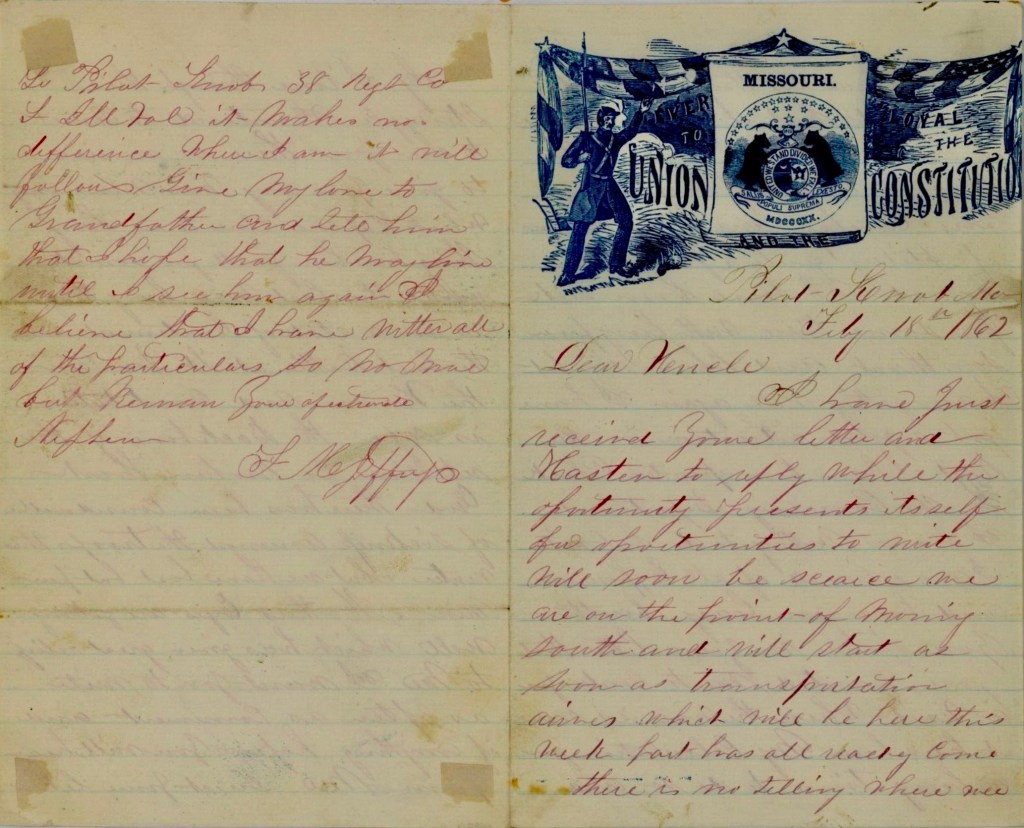 To Pilot Knob 38 Regt Co
F Ill Vol it makes no
difference where I am it will
follow Give my love to
Grandfather and tell him
that I hope that he may live
untill I see him again I
believe that I have ritten all
of the particulars so no more
but Reman Your afectionate
Nephew
MISSOURI.
EVER LOYAL
TO THE
UNION CONSTITUTION
UNITED WE STAND DIVIDED WE FALL
SALUS POPULI SUPREMA LEX ESTO
MDCCCXX.
AND THE
Pilot Knob Mo
Feby 18th 1862
Dear Uencle
I have Just
received Youre letter and
Hasten to reply while the
oportunity presents itself
for oportunities to write
will soon be scearce we
are on the point of moving
south and will start as
soon as transportation
arives which will be here this
week part has all ready come
there is no telling where wee